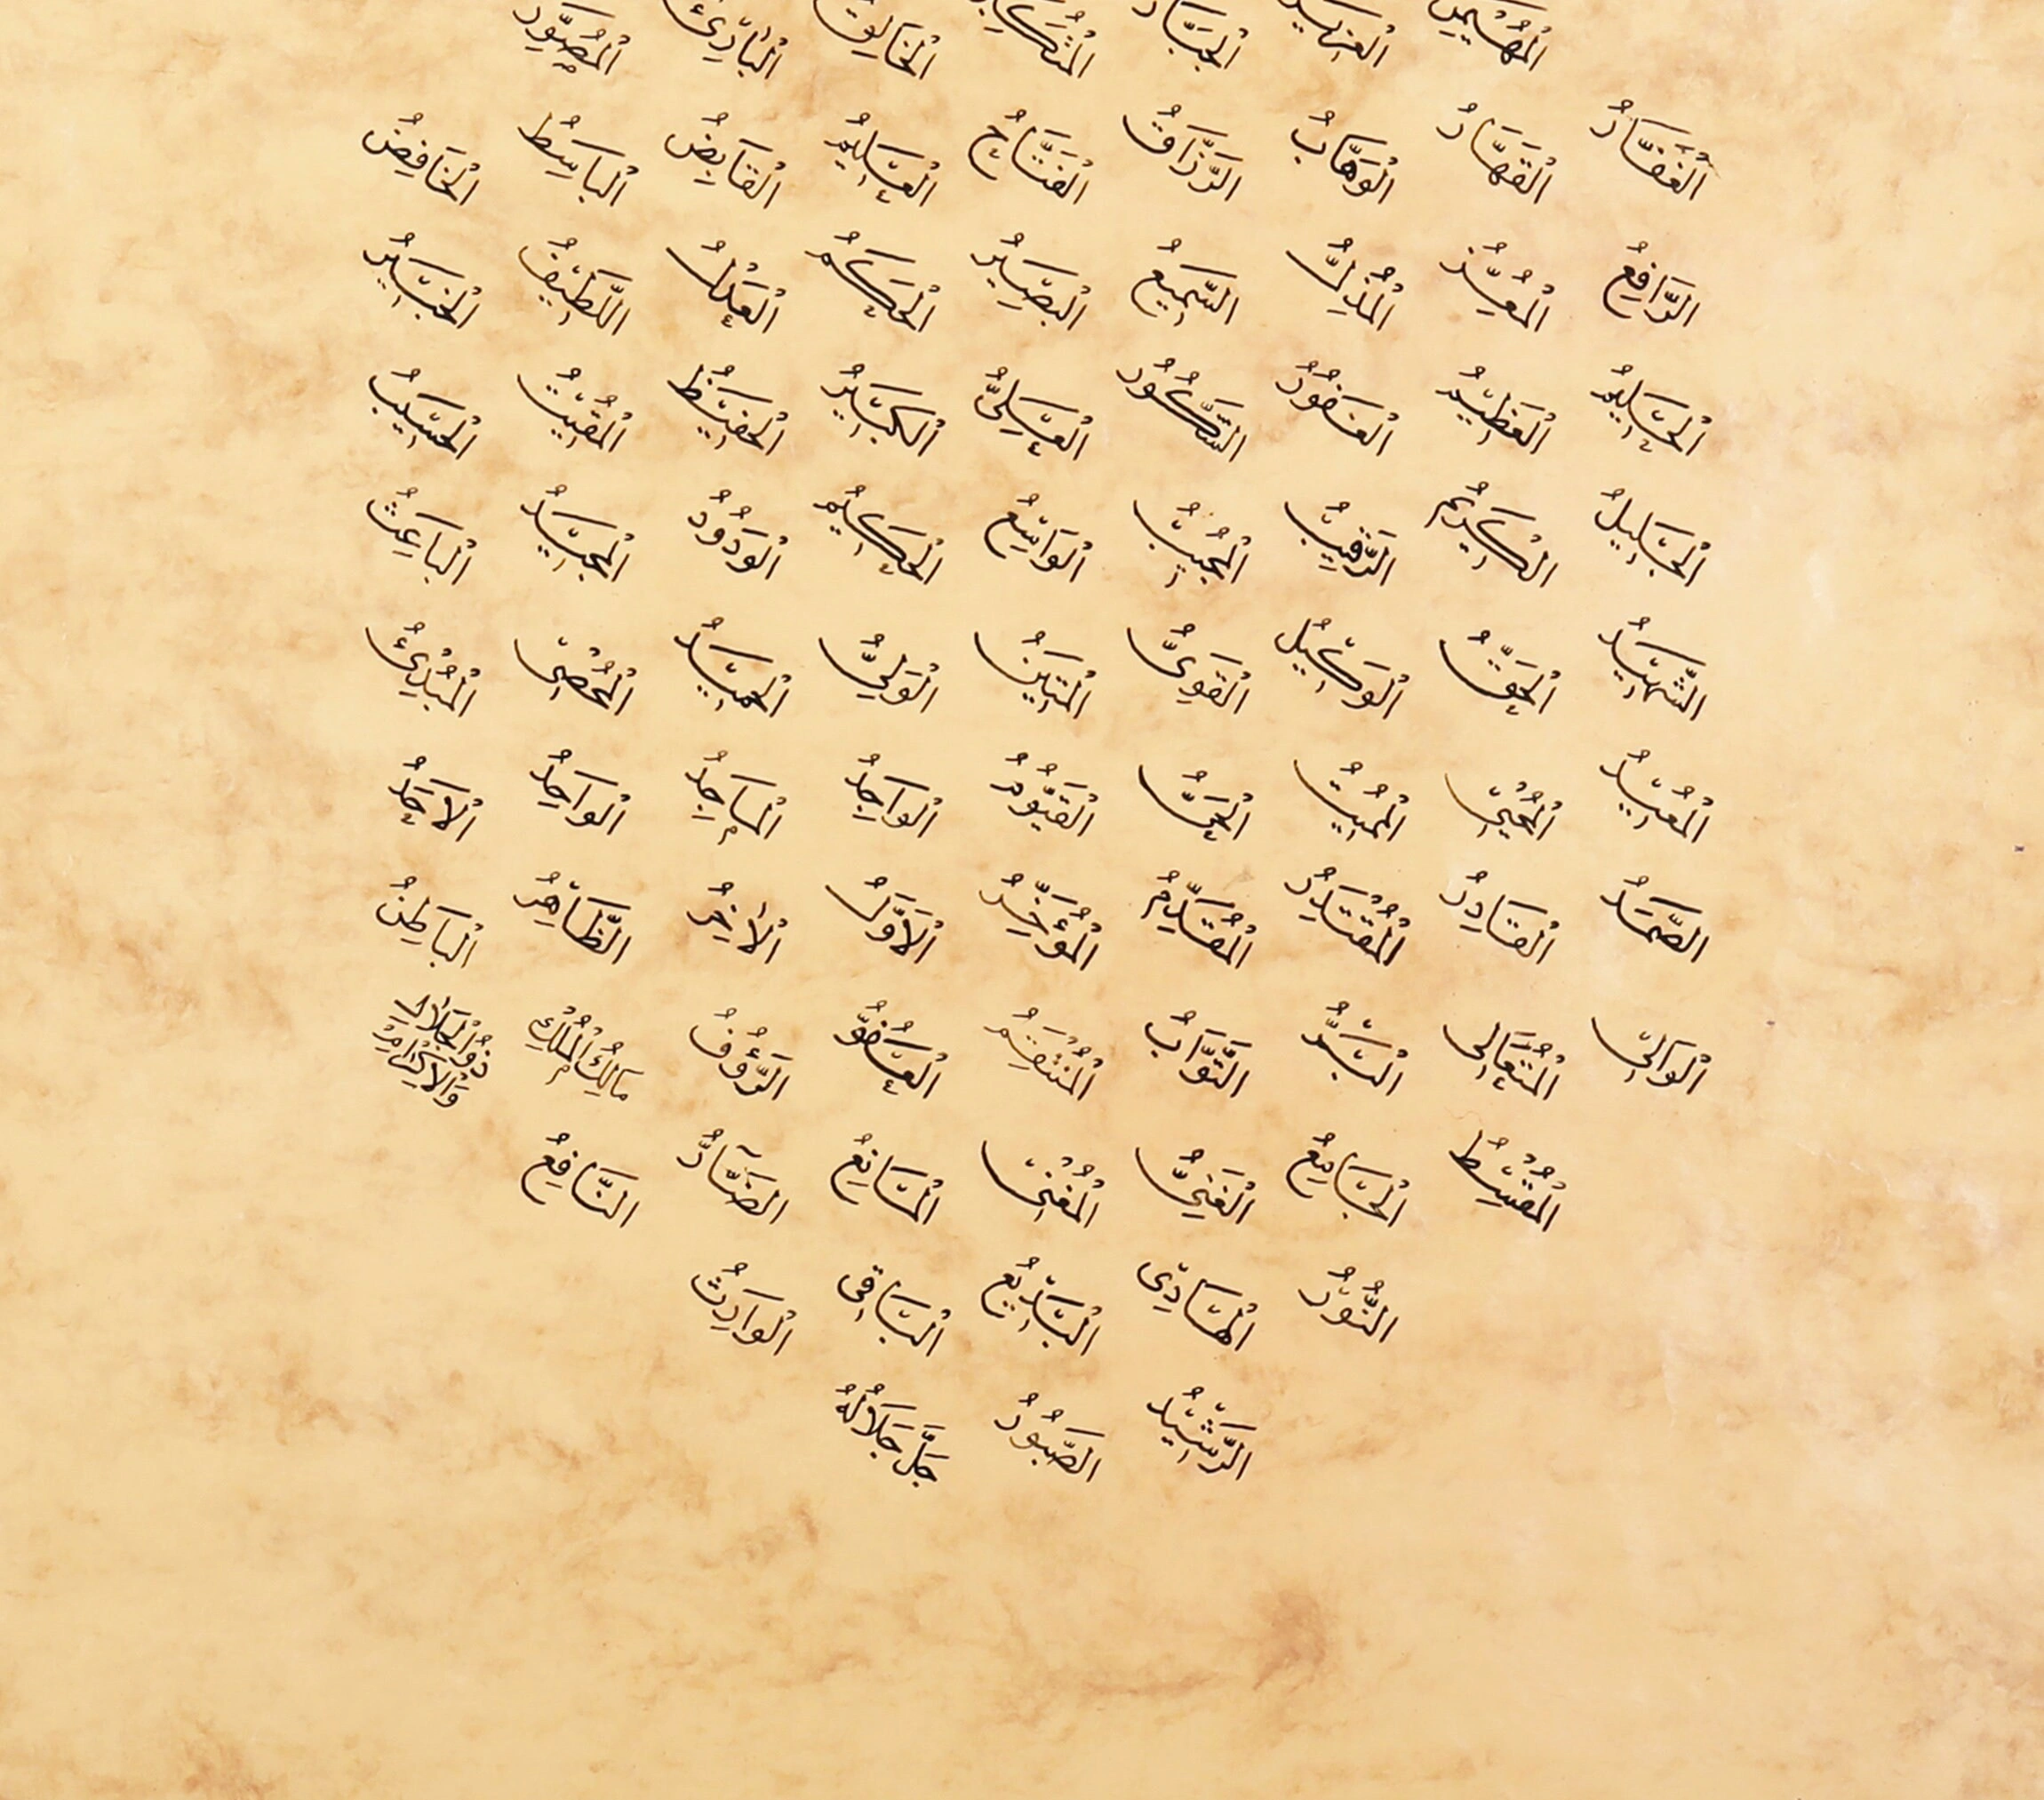 الْمُهَيْمِنُ الْعَزِيزُ الْجَبَّارُ الْمُتَكَبِّرُ الْخَالِقُ الْبَارِئُ الْمُصَوِّرُ
الْغَفَّارُ الْقَهَّارُ الْوَهَّابُ الرَّزَّاقُ الْفَتَّاحُ الْعَلِيمُ الْقَابِضُ الْبَاسِطُ الْخَافِضُ
الرَّافِعُ الْمُعِزُّ الْمُذِلُّ السَّمِيعُ الْبَصِيرُ الْحَكَمُ الْعَدْلُ اللَّطِيفُ الْخَبِيرُ
الْحَلِيمُ الْعَظِيمُ الْغَفُورُ الشَّكُورُ الْعَلِيُّ الْكَبِيرُ الْحَفِيظُ الْمُقِيتُ الْحَسِيبُ
الْجَلِيلُ الْكَرِيمُ الرَّقِيبُ الْمُجِيبُ الْوَاسِعُ الْحَكِيمُ الْوَدُودُ الْمَجِيدُ الْبَاعِثُ
الشَّهِيدُ الْحَقُّ الْوَكِيلُ الْقَوِيُّ الْمَتِينُ الْوَلِيُّ الْحَمِيدُ الْمُحْصِى الْمُبْدِئُ
الْمُعِيدُ الْمُحْيِى الْمُمِيتُ الْحَيُّ الْقَيُّومُ الْوَاجِدُ الْمَاجِدُ الْوَاحِدُ الْأَحَدُ
الصَّمَدُ الْقَادِرُ الْمُقْتَدِرُ الْمُقَدِّمُ الْمُؤَخِّرُ الْأَوَّلُ الْآخِرُ الظَّاهِرُ الْبَاطِنُ
الْوَالِى الْمُتَعَالِى الْبَرُّ التَّوَّابُ الْمُنْتَقِمُ الْعَفُوُّ الرَّؤُوفُ مَالِكُ الْمُلْكِ ذُو الْجَلَالِ وَالْإِكْرَامِ
الْمُقْسِطُ الْجَامِعُ الْغَنِيُّ الْمُغْنِى الْمَانِعُ الضَّارُّ النَّافِعُ
النُّورُ الْهَادِى الْبَدِيعُ الْبَاقِى الْوَارِثُ
الرَّشِيدُ الصَّبُورُ جَلَّ جَلَالُهُ